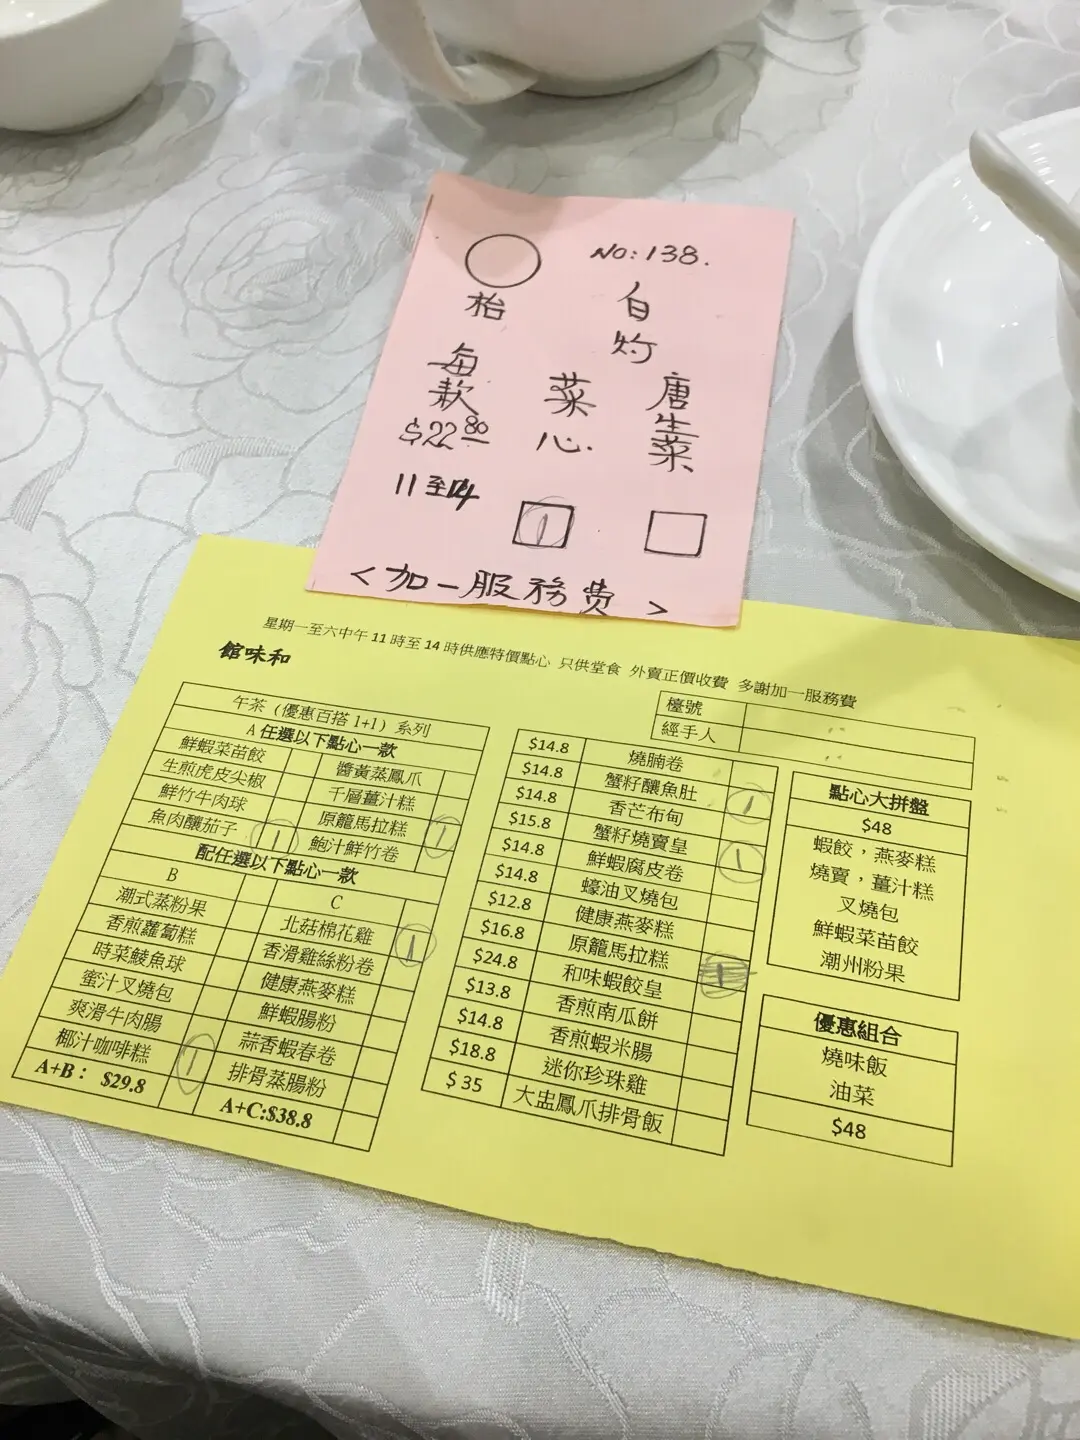 NO: 138.
枱
白灼
每款
$22.80
菜心
唐生菜
11至14
1
<加一服務費>
星期一至六中午 11 時至 14 時供應特價點心 只供堂食 外賣正價收費 多謝加一服務費
館味和
檯號
經手人
午茶（優惠百搭 1+1）系列
A 任選以下點心一款
鮮蝦菜苗餃 醬黃蒸鳳爪
生煎虎皮尖椒 千層薑汁糕
鮮竹牛肉球 原籠馬拉糕 1
魚肉釀茄子 1 鮑汁鮮竹卷
配任選以下點心一款
B C
潮式蒸粉果 北菇棉花雞 1
香煎蘿蔔糕 香滑雞絲粉卷
時菜鯪魚球 健康燕麥糕
蜜汁叉燒包 鮮蝦腸粉
爽滑牛肉腸 蒜香蝦春卷
椰汁咖啡糕 1 排骨蒸腸粉
A+B： $29.8 A+C:$38.8
$14.8 燒腩卷
$14.8 蟹籽釀魚肚 1
$14.8 香芒布甸
$15.8 蟹籽燒賣皇 1
$14.8 鮮蝦腐皮卷
$14.8 蠔油叉燒包
$12.8 健康燕麥糕
$16.8 原籠馬拉糕
$24.8 和味蝦餃皇
$13.8 香煎南瓜餅
$14.8 香煎蝦米腸
$18.8 迷你珍珠雞
$ 35 大盅鳳爪排骨飯
點心大拼盤
$48
蝦餃，燕麥糕
燒賣，薑汁糕
叉燒包
鮮蝦菜苗餃
潮州粉果
優惠組合
燒味飯
油菜
$48